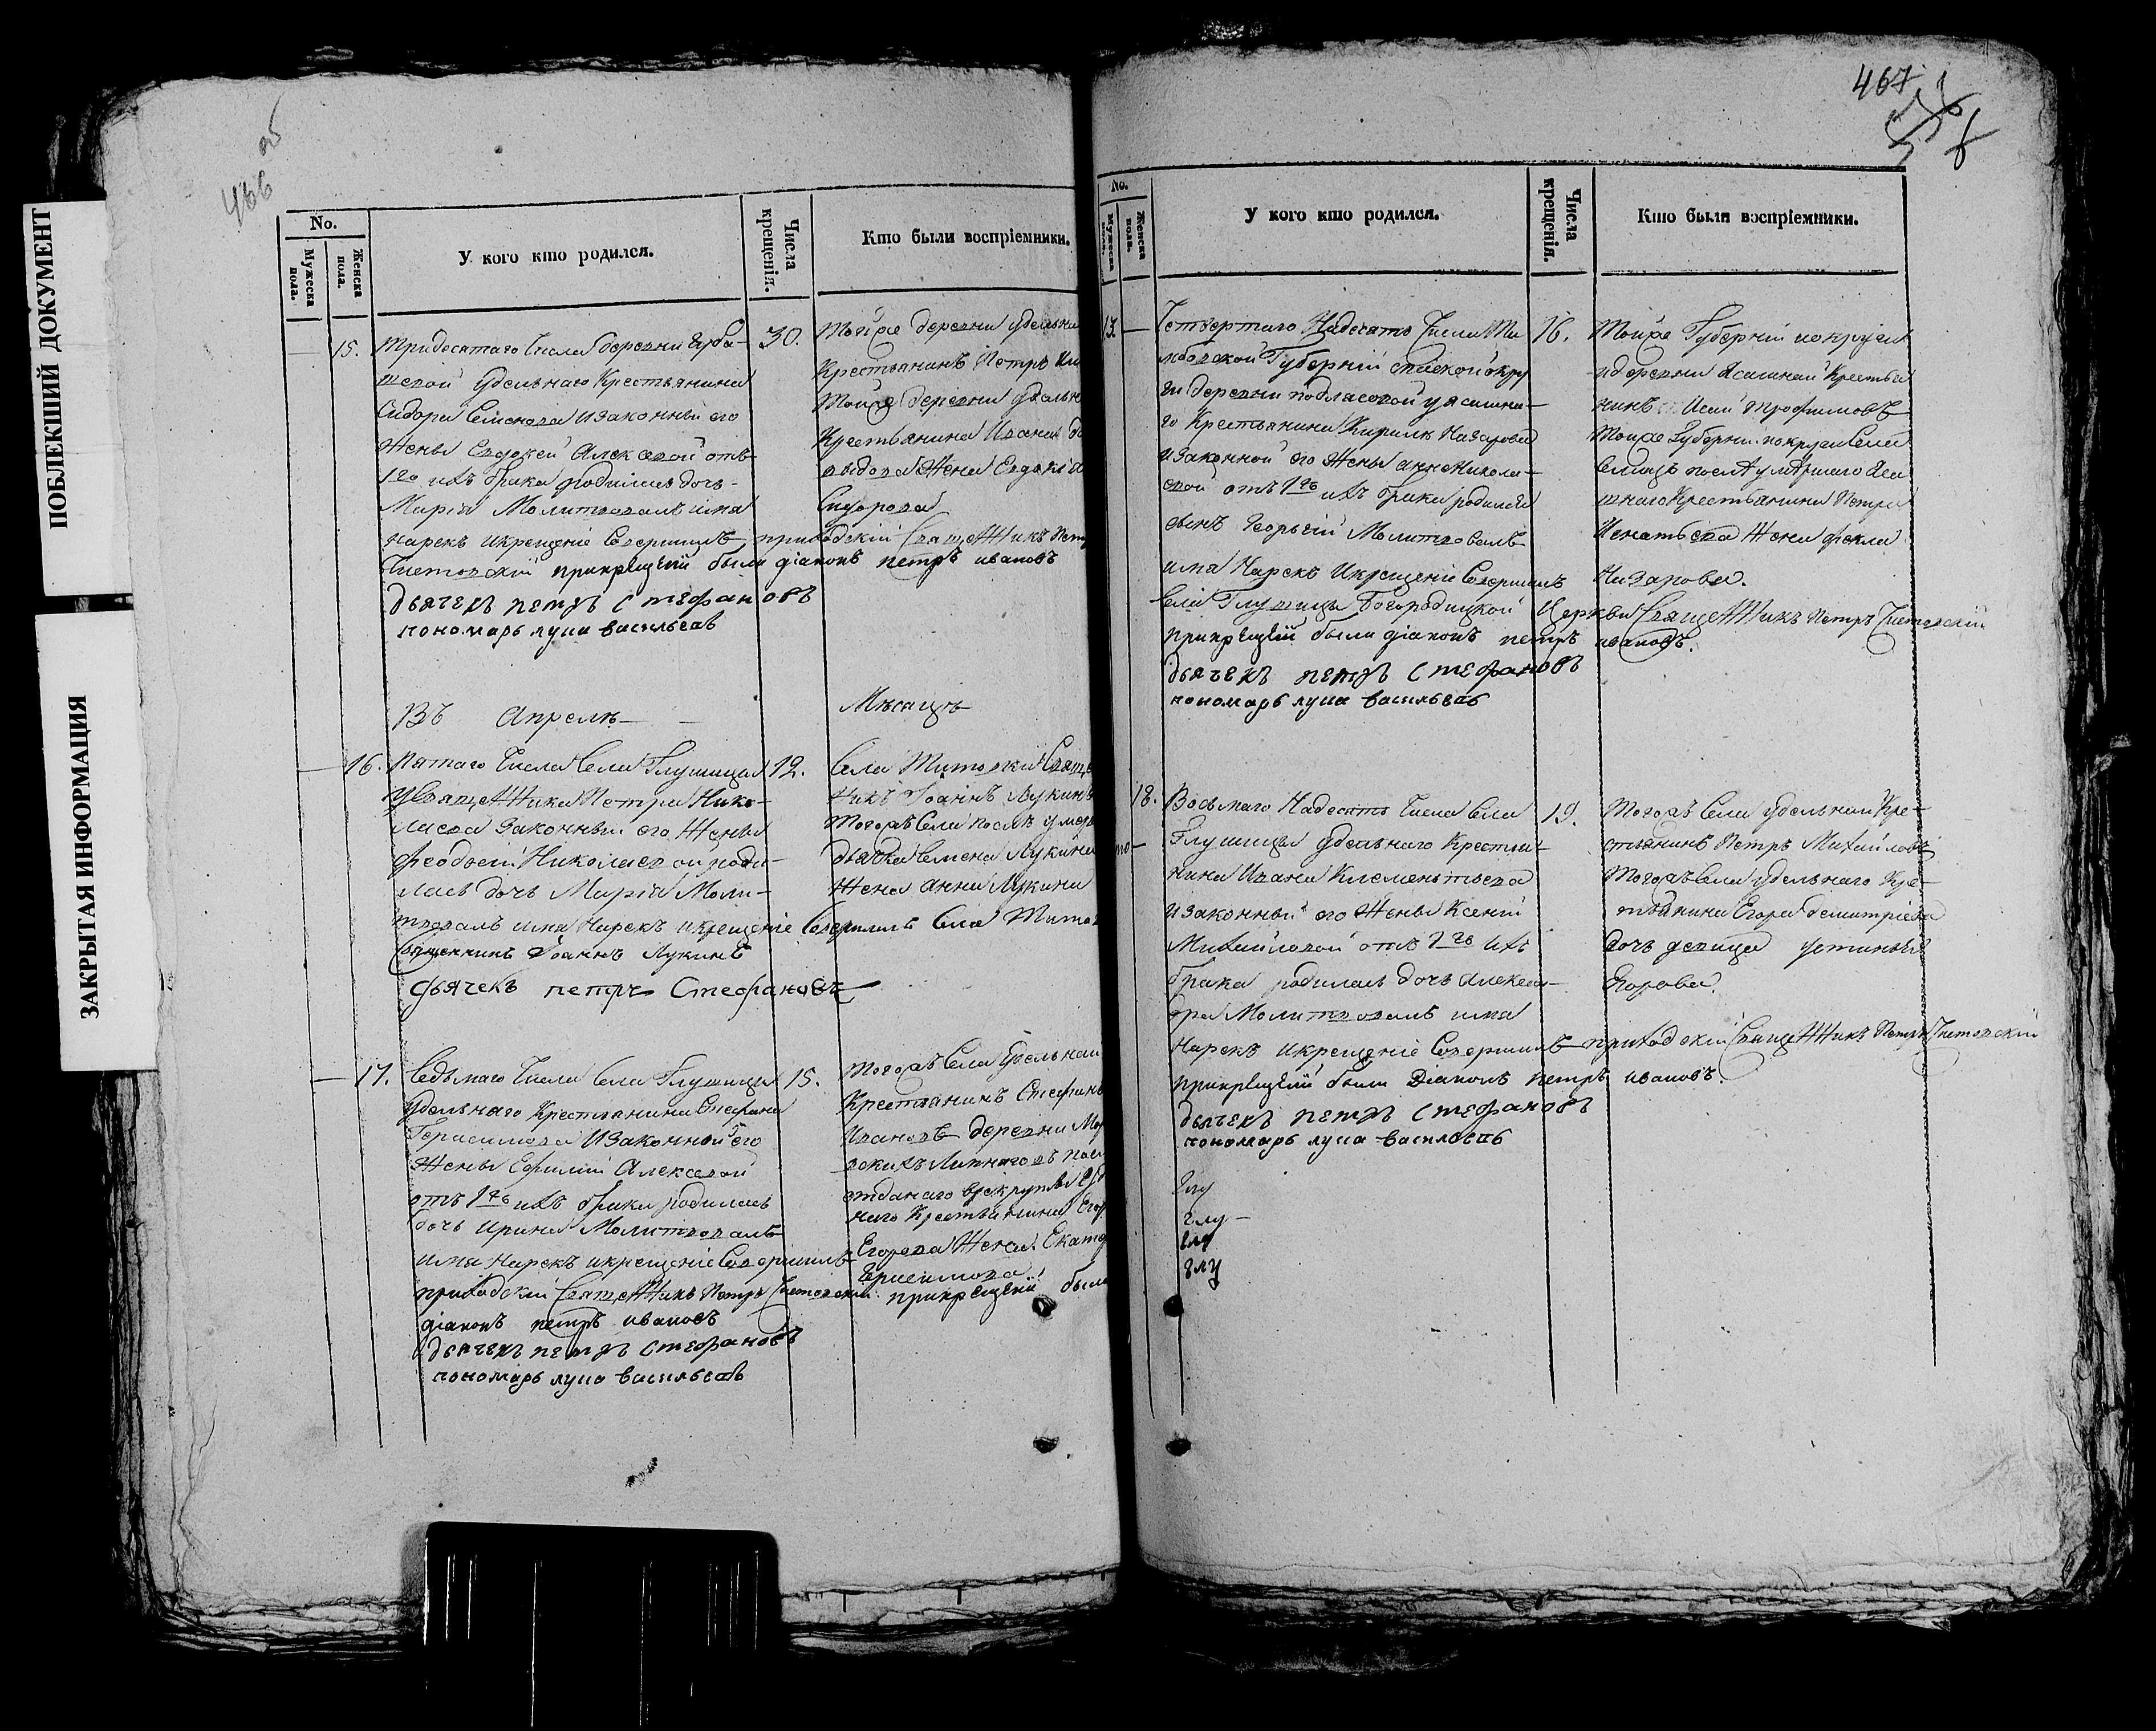 ПОБЛЕКШИЙ ДОКУМЕНТ
ЗАКРЫТАЯ ИНФОРМАЦИЯ
466 об
No.
Мужеска пола.
Женска пола.
У кого кто родился.
Числа крещенія.
Кто были воспріемники.
15. Тридесятаго Числа деревни
удельнаго Крестьянина
Сидора Семенова изаконныи его
Жены Евдокеи Алексевой отъ
1го ихъ брака родилась дочь
Марія Молитвовалъ имя
нарекъ икрещеніе Совершилъ приходскій СвящеННикъ Петръ
Чистовскій прикрещеніи были діаконъ петръ ивановъ
дьячекъ петръ Стефановъ
пономарь лупа васильевъ
30. Тойже деревни удельни
Крестьянинъ Петръ
Тойже деревни удельн
Крестьянина Ивана
Жена Евдокія
Сидорова
Въ Апреле Месяце
16. Пятаго Числа Села Глушицы
уСвящеННика Петра Нико-
лаева Законныи его Жены
Феодосіи Николаевой роди-
лась дочь Марія Моли-
твовалъ имя Нарекъ икрещеніе Совершилъ Села
Священникъ Іоаннъ Лукинъ
дьячекъ петръ Стефановъ
12. Села Свяще
Никъ Іоаннъ Лукинъ
Тогожъ Села послѣ умер
дьячка Семена Лукина
Жена Анна Лукина
17. Седьмаго Числа Села Глушицы
удельнаго Крестьянина Стефана
Герасимова Изаконныи его
Жены Ефиміи Алексевой
отъ 1го ихъ брака родилась
дочь Ирина Молитвовалъ
имя Нарекъ икрещеніе Совершилъ
приходскіи СвящеННикъ Петръ Чистовскій прикрещеніи были
діаконъ петръ ивановъ
дьячекъ петръ Стефановъ
пономарь лупа васильевъ
15. Тогожъ Села Удельнаи
Крестьянинъ Стефанъ
Ивановъ деревни
отданаго врекруты
наго Крестьянина Егор
Егорова Жена Екате
467
No.
Мужеска пола.
Женска пола.
У кого кто родился.
Числа крещенія.
Кто были воспріемники.
13. Четвертаго Надесять Числа Та
мбовской Губерніи спаской окру
ги деревни
го Крестьянина Кирилы Назарова
изаконной его Жены Анны Никола-
евой отъ 1го ихъ брака родился
сынъ Георьгій Молитвовалъ
имя Нарекъ Икрещеніе Совершилъ
Села Глушицы Богородицкой Церкви СвящеННикъ Петръ Чистовскій
прикрещеніи были діаконъ петръ ивановъ.
дьячекъ петръ Стефановъ
пономарь лупа васильевъ
16. Тойже Губерніи иокруги
идеревни Ясашнай Крестья
нинъ Исай Трофимовъ
Тойже Губерніи иокруги Села
послѣ умѣршаго Яса
шнаго Крестьянина Петра
Игнатьева Жена Фекла
Назарова.
18. Восьмаго Надесять Числа Села
Глушицы Удельнаго Крестья-
нина Ивана Клементьева
изаконныи его Жены Ксеніи
Михайловой отъ 2го ихъ
брака родилась дочь Алексан-
дра Молитвовалъ имя
Нарекъ икрещеніе Совершилъ приходскій СвящеННикъ Петръ Чистовскій
прикрещеніи были Діаконъ петръ ивановъ.
дьячекъ петръ Стефановъ
пономарь лупа васильевъ
19. Тогожъ Села Удельнай Кре-
стьянинъ Петръ Михайловъ
Тогожъ Села удельнаго Кре-
стьянина Егора Демитріева
Дочь девица Устинья
Егорова.
Глу
глу
Глу
глу